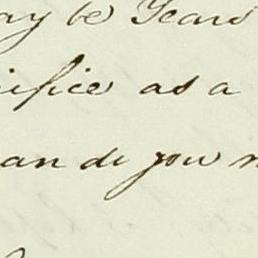 ay be Years
rifice as a
an do you